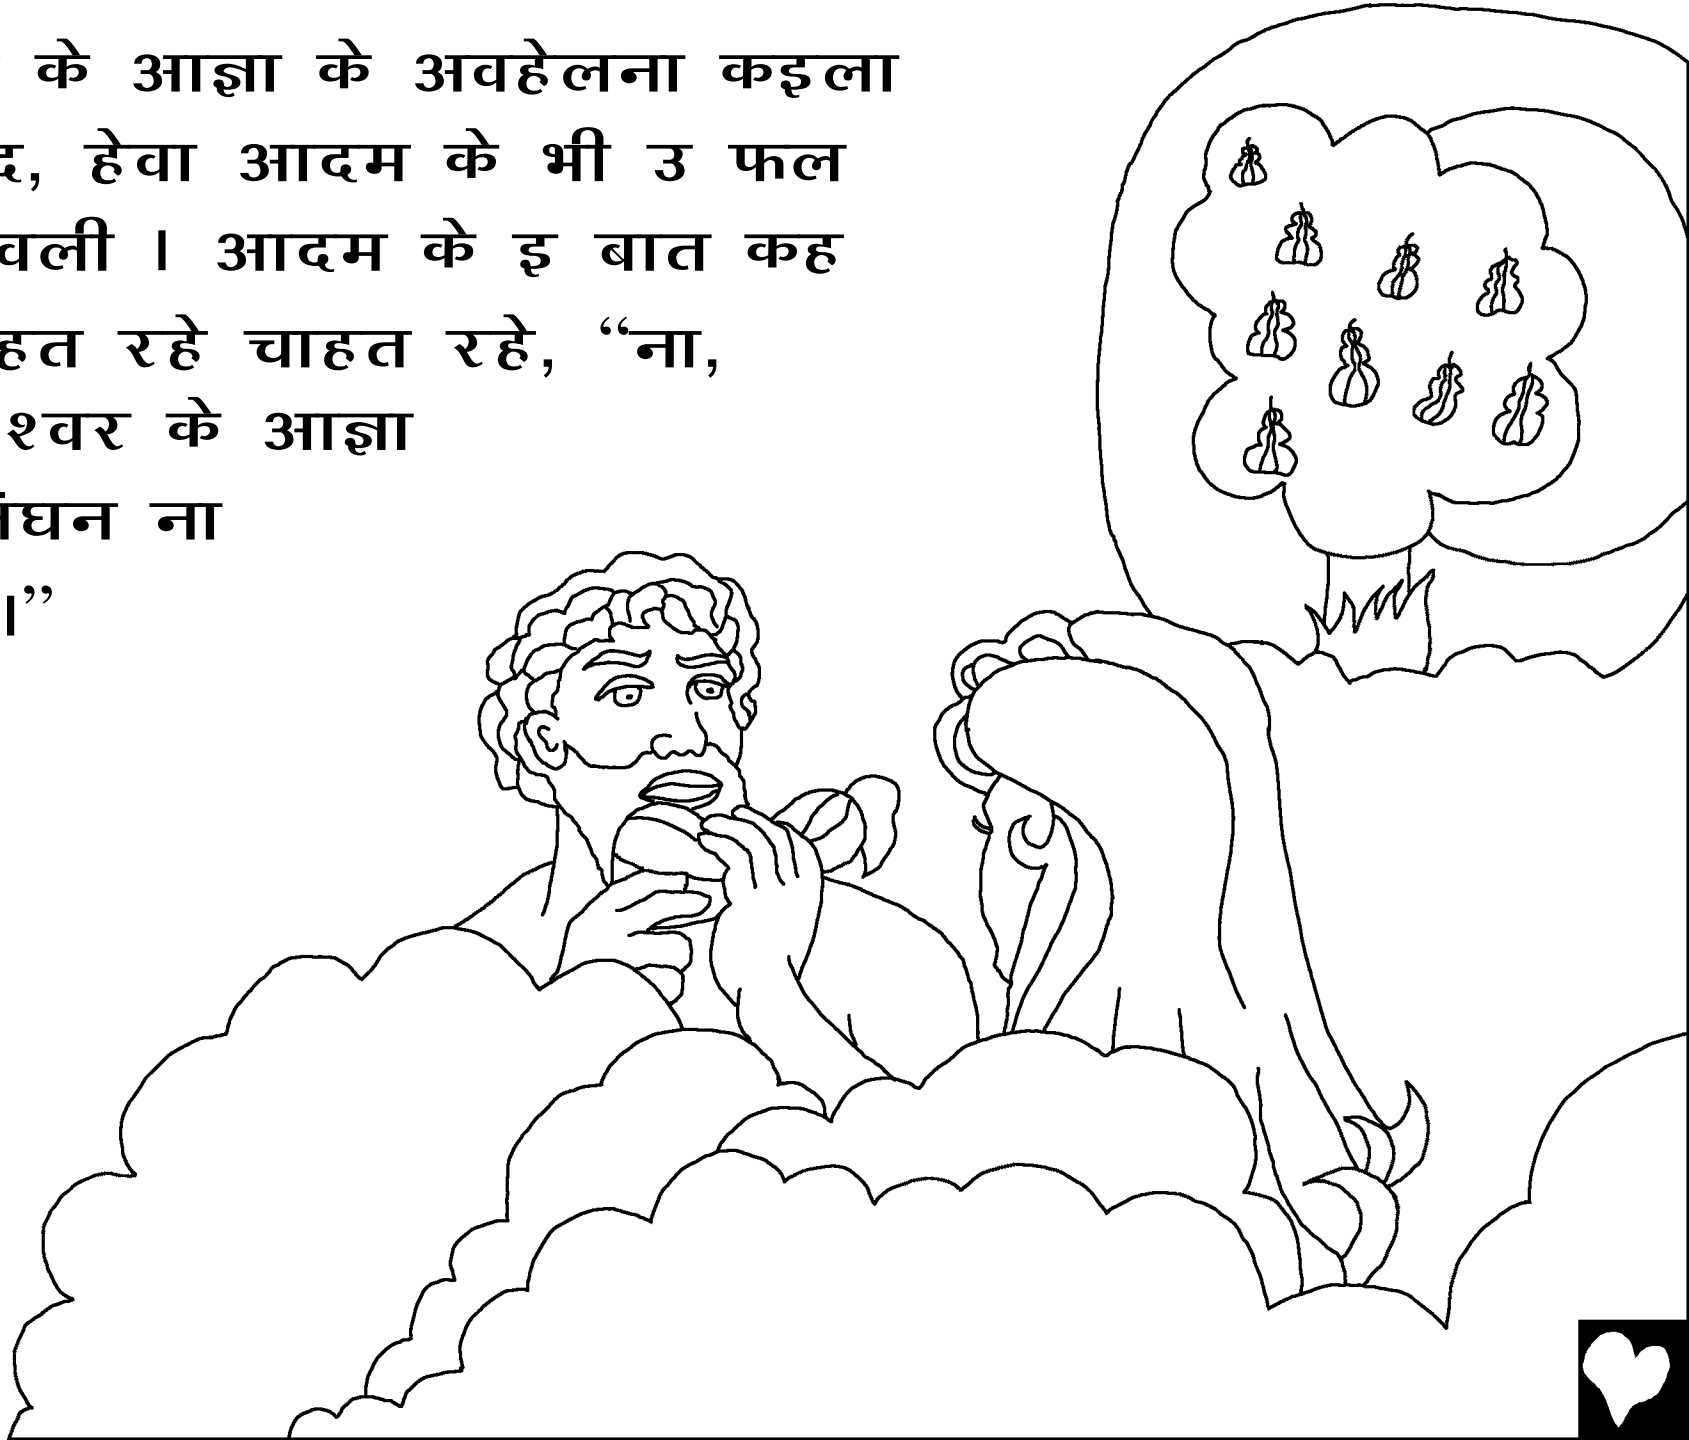 के आज्ञा के अवहेलना कइला
हेवा आदम के भी उ फल
। आदम के इ बात कह
रहे चाहत रहे, “ना,
के आज्ञा
ना
।”